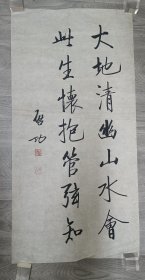 大地清幽山水會
此生懷抱管弦知
啟功